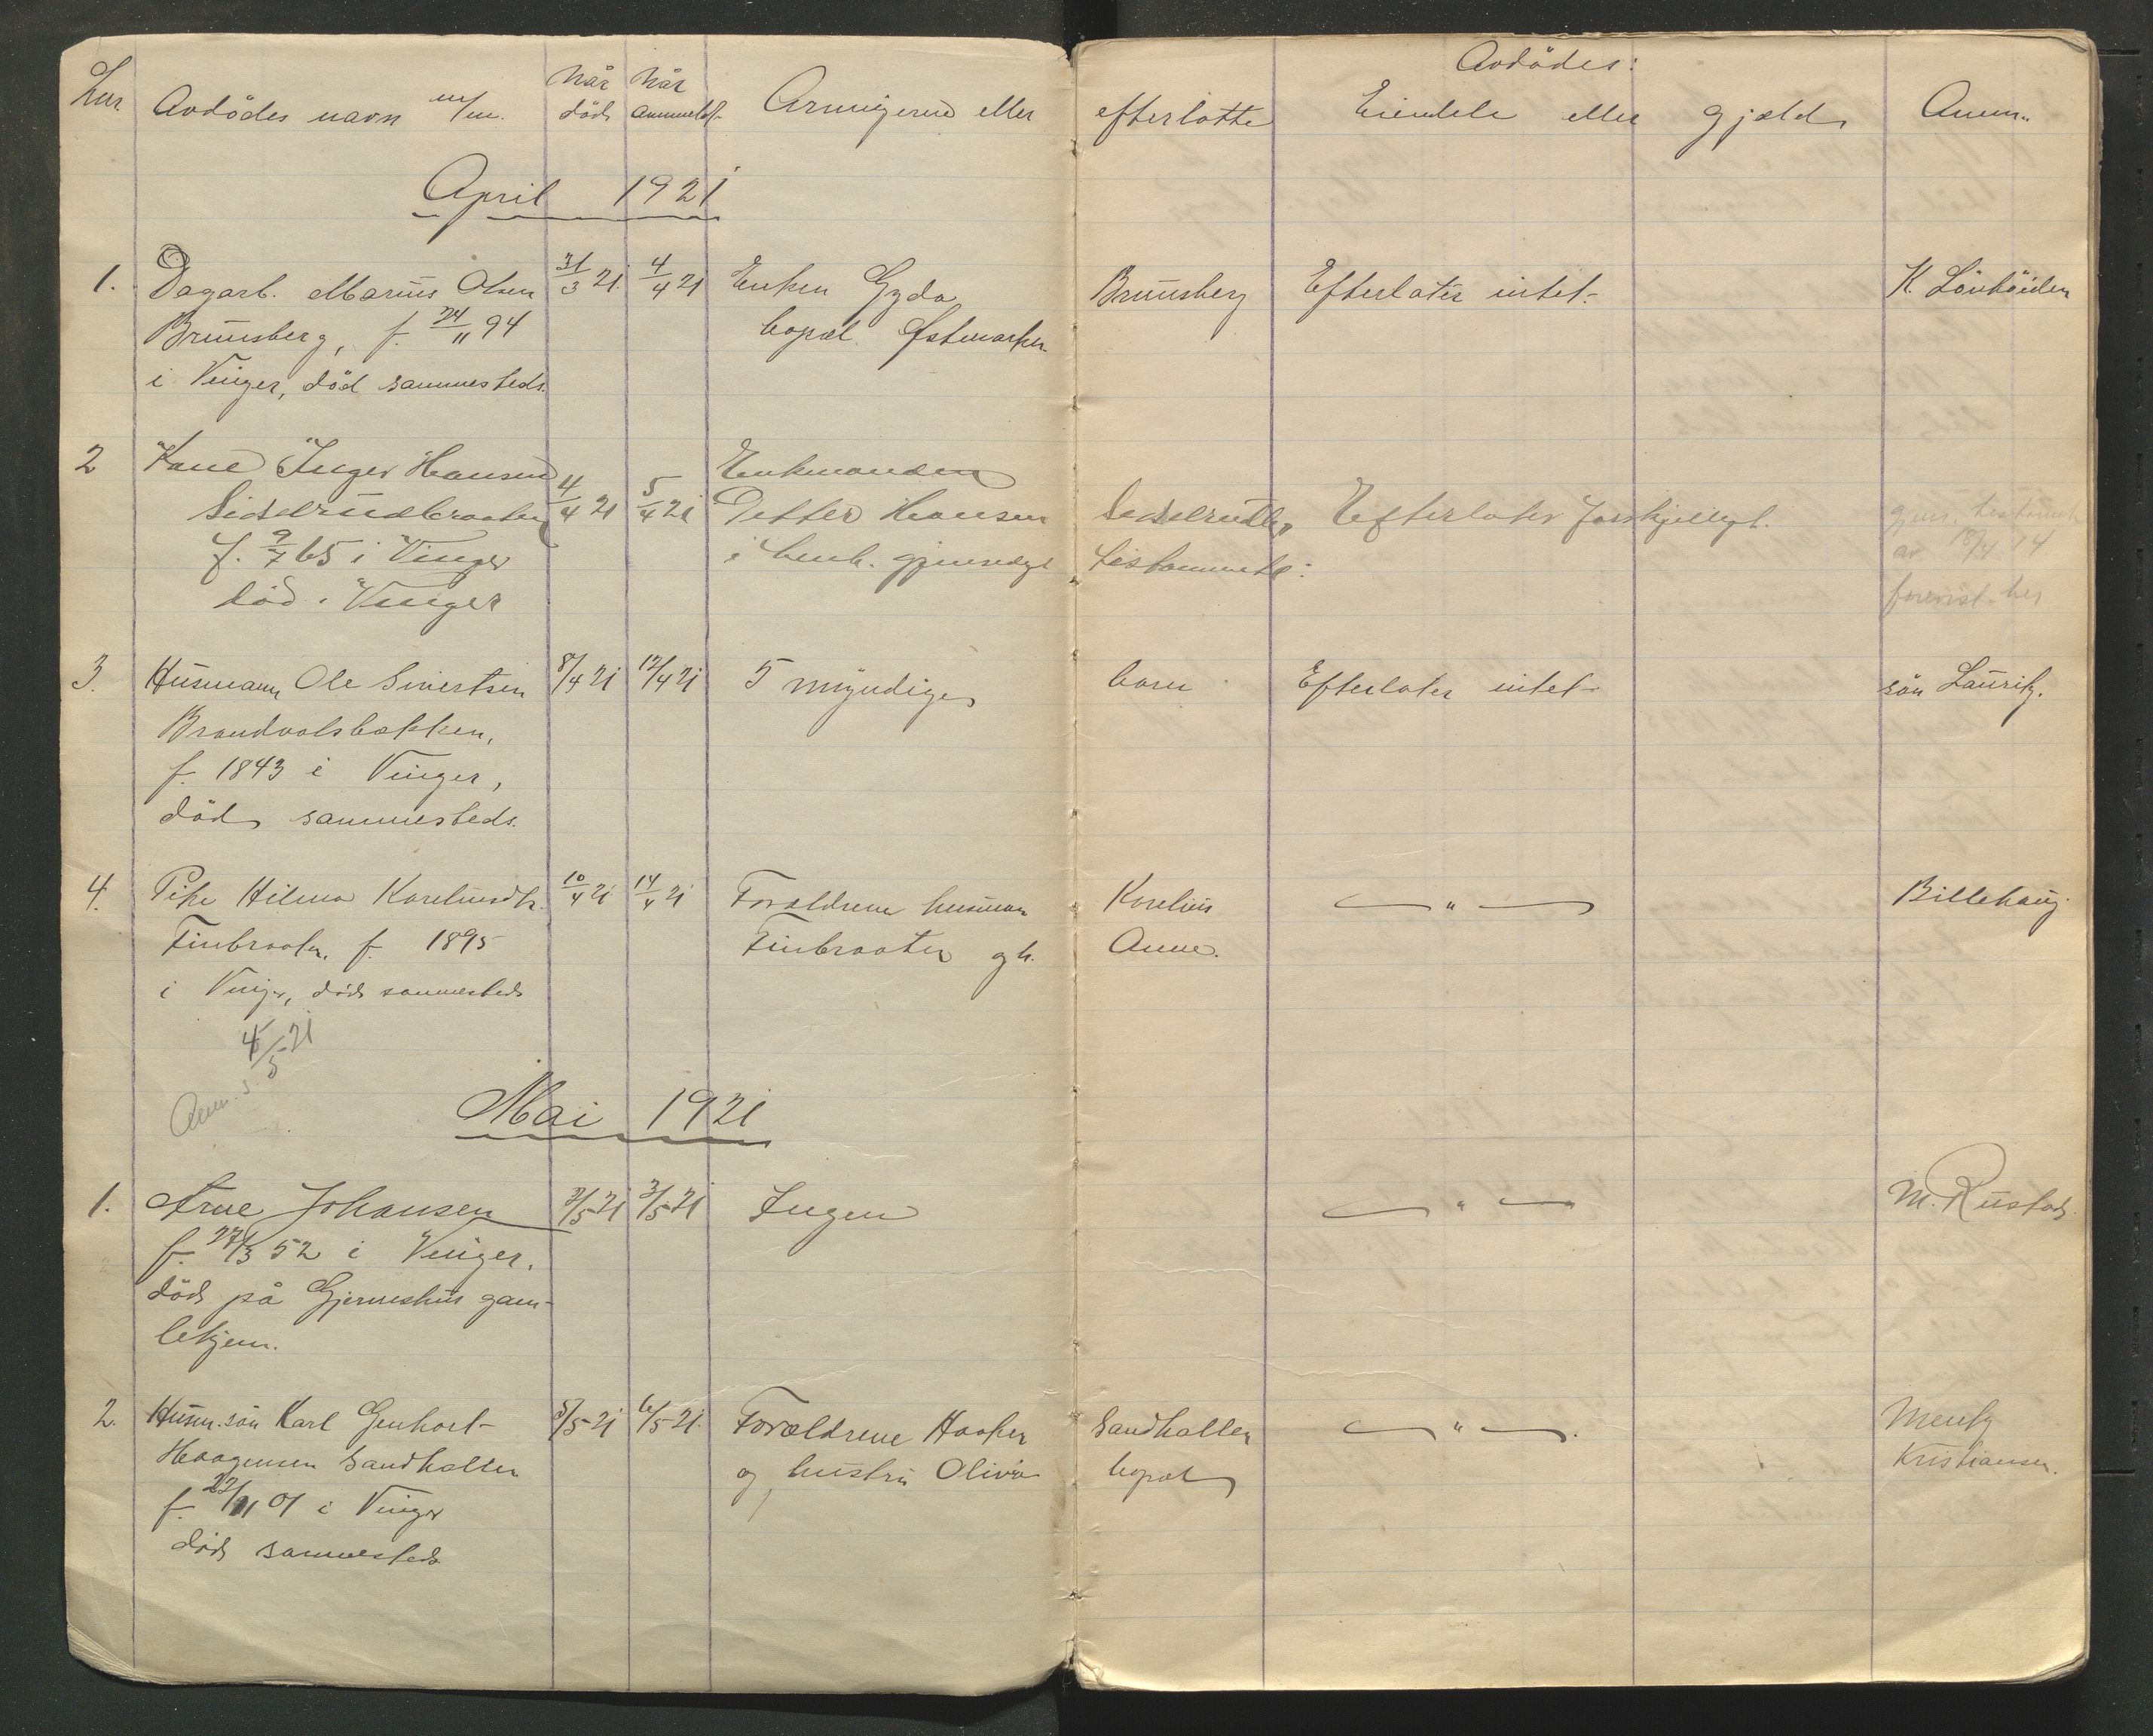 Lnr. Avdödes navn m/m. Når död Når anmeldt Arvingerne eller efterlatte Avdödes: Eiendele eller gjæld Anm.
April 1921
1. Dagarb. Marius Olsen 31/3 21. 4/4 21 Enken Gyda Brunsberg Efterlater intet. K. Lövhöiden
Brunsberg, f. 24/11 94 bopæl Østmarken
i Vinger, död sammesteds.
2 Kone Inger Hansen Enkemanden
Sidselrudbraaten 4/4 21 5/4 21 Petter Hansen Sidselrudbr. Efterlater forskjelligt. gjens. testamente
f. 9/7 65 i Vinger i henh. gjensidigt testamente: av 13/4 14
död i Vinger forevist her
3. Husmann Ole Sivertsen 8/4 21 12/4 21 5 myndige barn Efterlater intet sön Lauritz.
Brandvolsbakken,
f. 1843 i Vinger,
död sammesteds.
4. Pike Hilma Koreliusdtr. 10/4 21 14/4 21 Forældrene husman Korelius — " — Billehaug
Finbraaten, f. 1895 Finbraaten gh. Anne.
i Vinger, död sammesteds
4/5 21
Anm. s.
Mai 1921
1. Arne Johansen 3/5 21 3/5 21 Ingen — " — M. Rustad.
f. 27/3 52 i Vinger,
död på Gjemshus gam-
lehjem.
2. Husm. sön Karl Genhart 5/5 21 6/5 21. Forældrene Haaken Sandhallen — " —. Mentz
Haagensen Sandhallen og hustru Olivia bopæl Kristiansen.
f. 22/11 01 i Vinger
död sammesteds